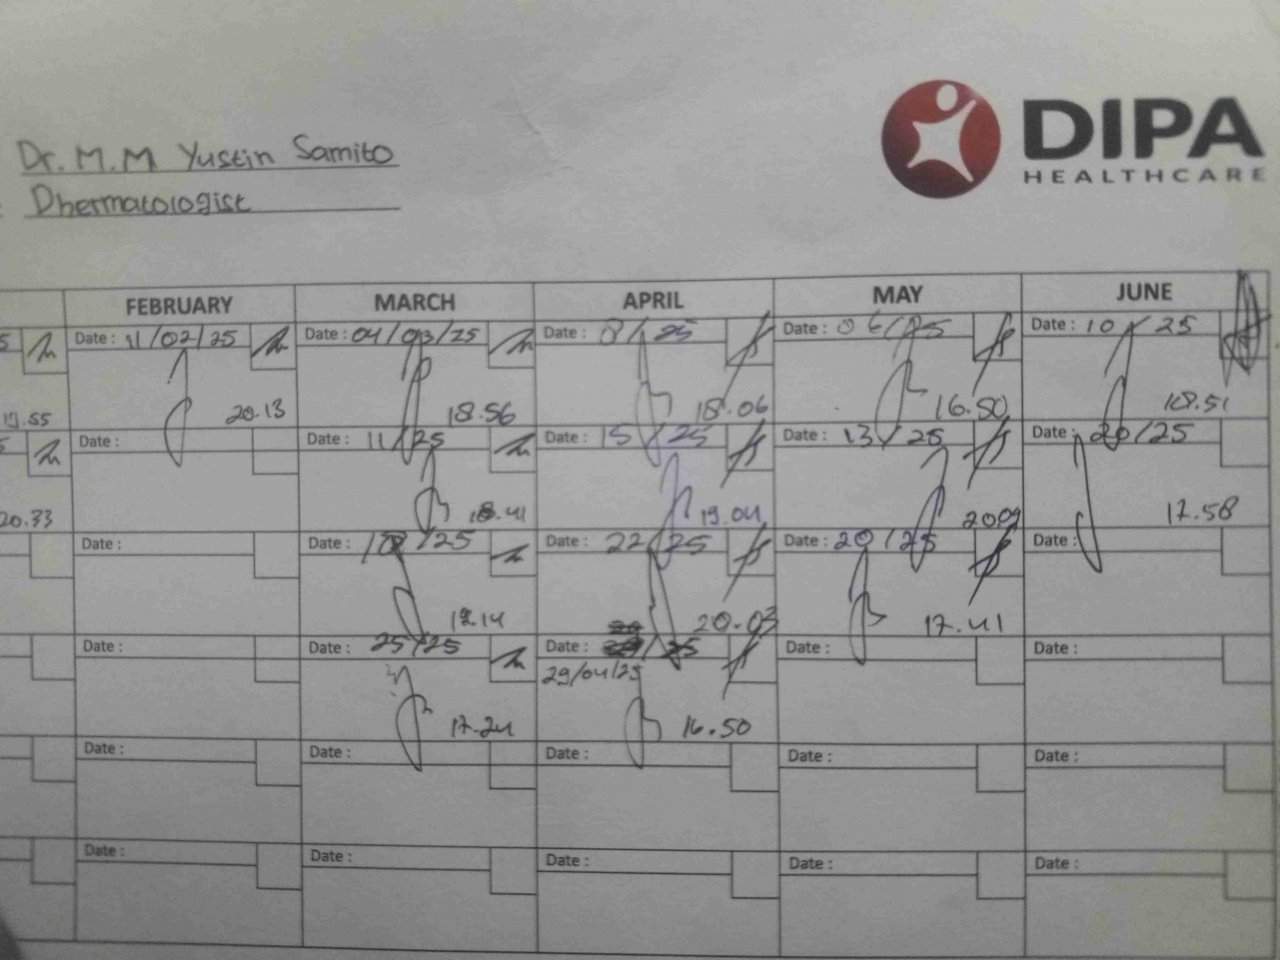 DIPA
HEALTHCARE
Dr. M.M Yustin Samito
Dhermatologist
FEBRUARY MARCH APRIL MAY JUNE
5 Date : 11/02/25 Date : 04/03/25 Date : 8/25 Date : 06/25 Date : 10/25
20.13 18.56 18.06 16.50 18.51
5 Date : Date : 11/25 Date : 15/25 Date : 13/25 Date : 20/25
20.33 18.41 19.04 20.09 17.58
Date : Date : 18/25 Date : 22/25 Date : 20/25 Date :
20.03 17.41
Date : Date : 25/25 Date : Date : Date :
29/04/25
17.24 16.50
Date : Date : Date : Date : Date :
Date : Date : Date : Date : Date :